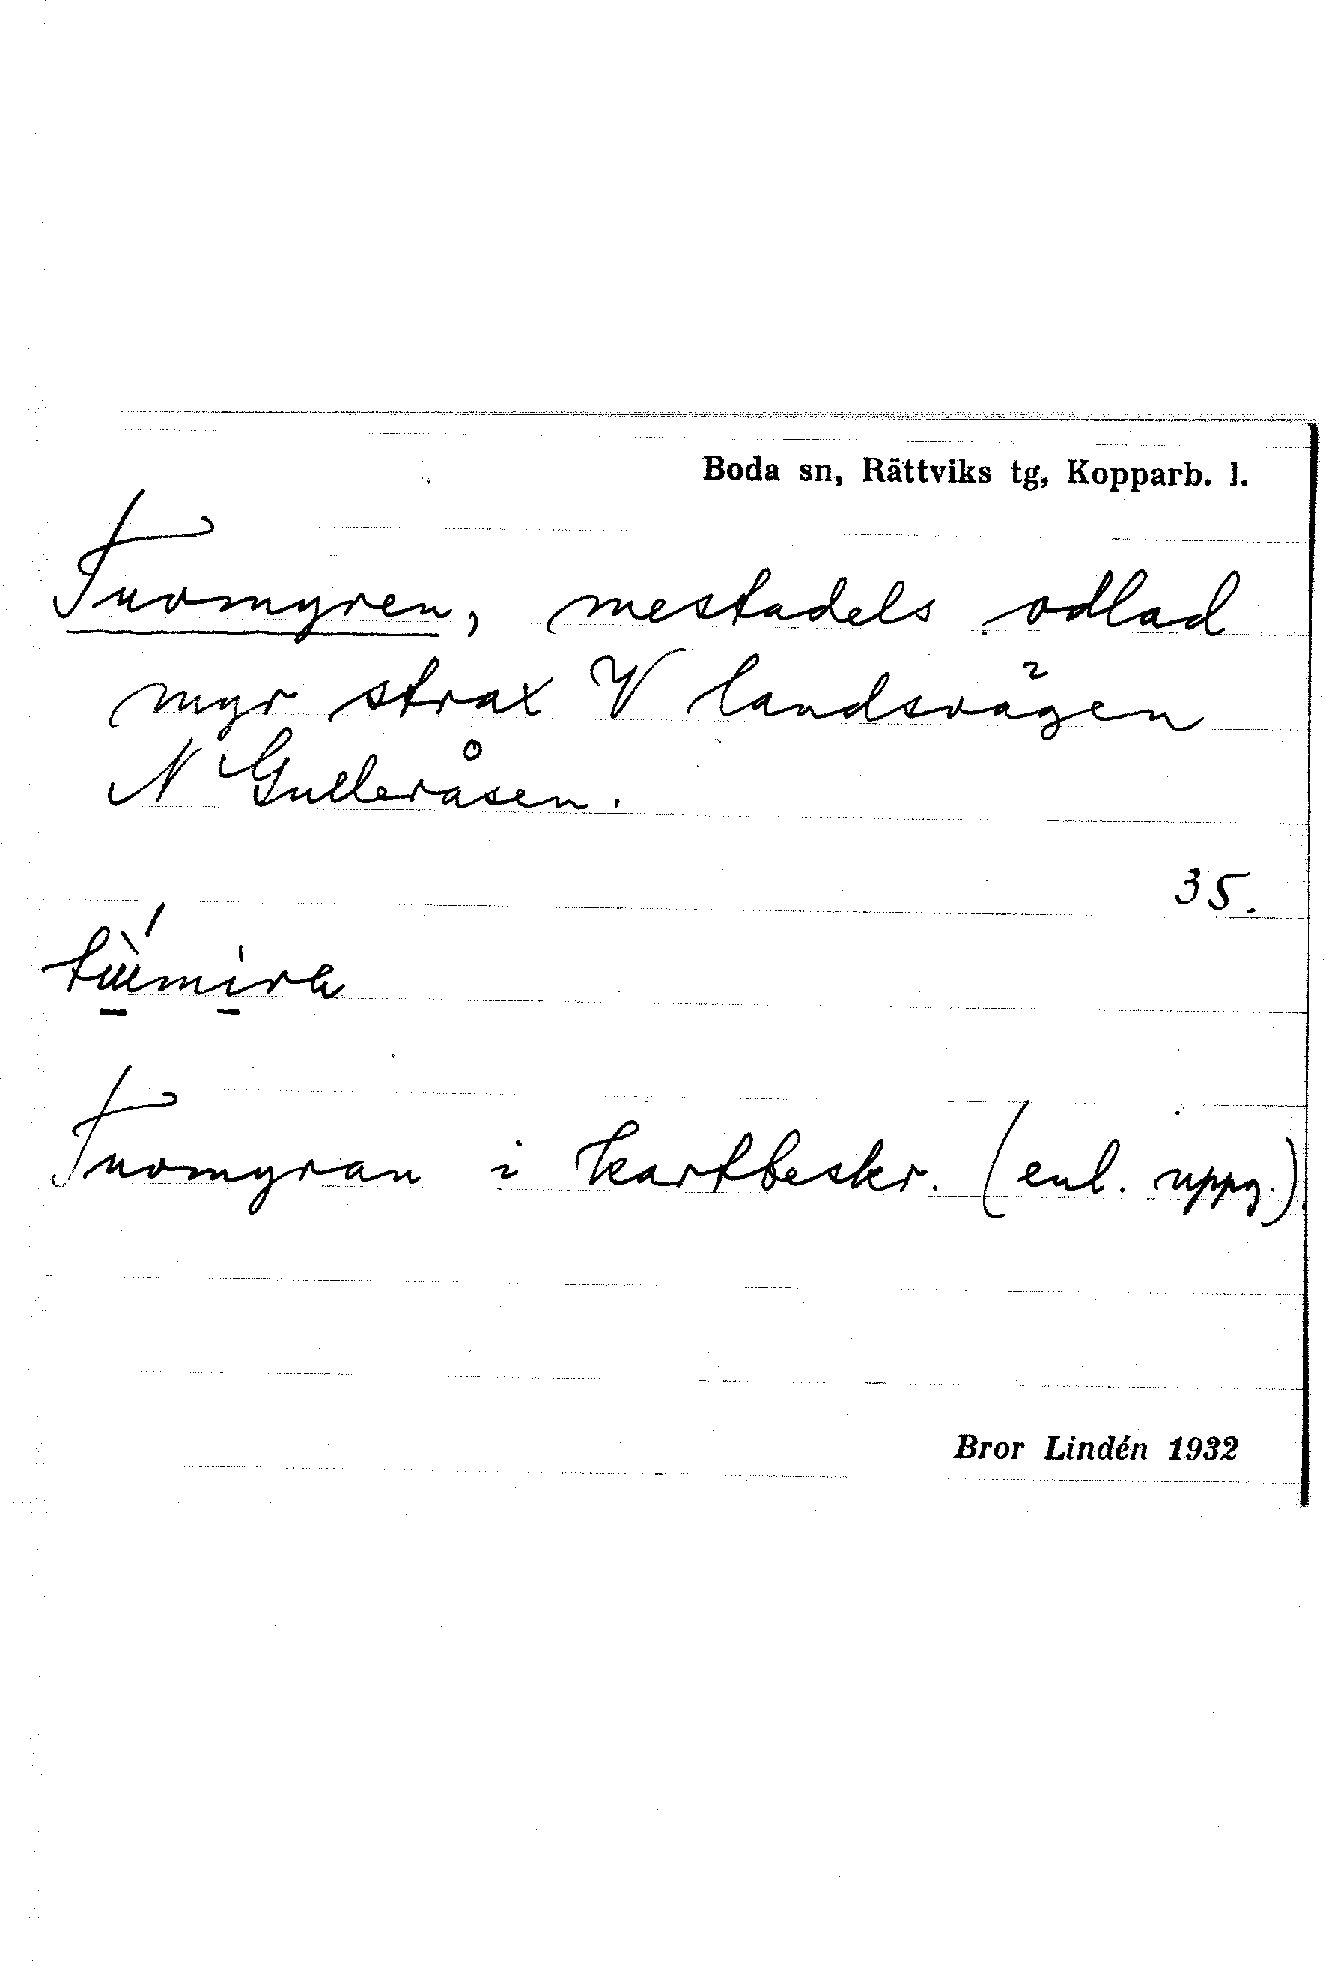 Boda sn, Rättviks tg, Kopparb. l.
Tuvmyren, mestadels odlad
myr strax V landsvägen
N Gulleråsen.
35.
Tuvmyran i kartbeskr. (enl. uppg.)
Bror Lindén 1932